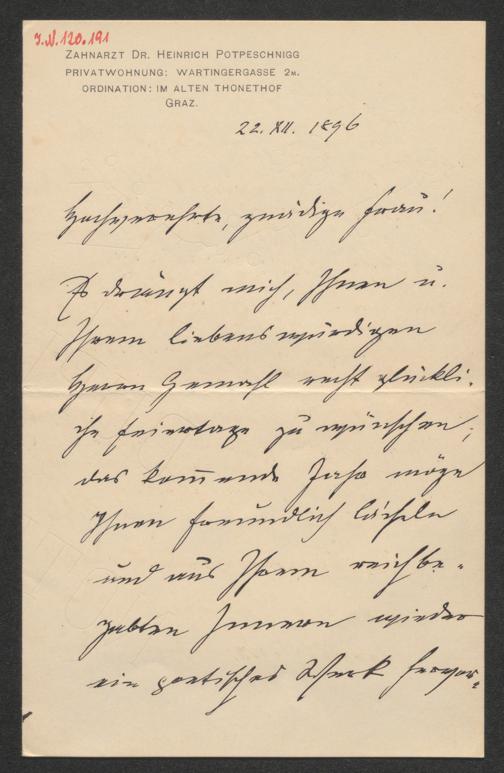 I.N. 120.191
ZAHNARZT DR. HEINRICH POTPESCHNIGG
PRIVATWOHNUNG: WARTINGERGASSE 2
ORDINATION: IM ALTEN THONETHOF
GRAZ.
22. XII. 1896
Hochverehrte, gnädige Frau!
Es drängt mich, Ihnen u.
Ihrem liebenswürdigen
Herrn Gemahl recht glückli-
che Feiertage zu wünschen;
das kom̅ende Jahr möge
Ihnen freundlich lächeln
und aus Ihrem reichbe-
gabten Innern wieder
ein poetisches Werk hervor-